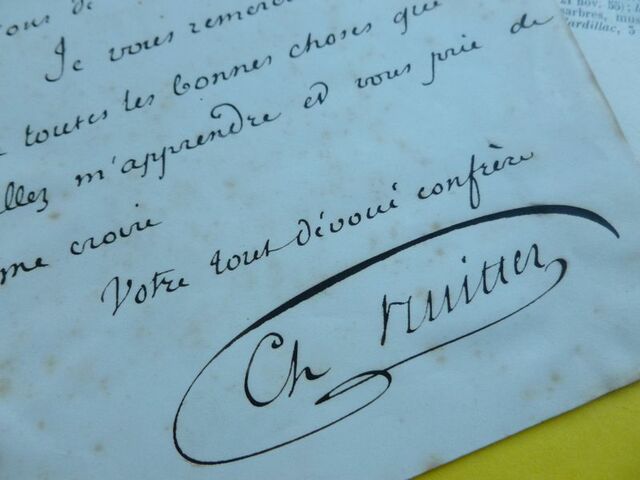 ous de
Je vous remerc
toutes les bonnes choses que
llez m'apprendre et vous prie de
me croire
Votre tout dévoué confrère
Ch Nuitter
21 nov. 35) : 
arbres, mus
Cardillac, 3